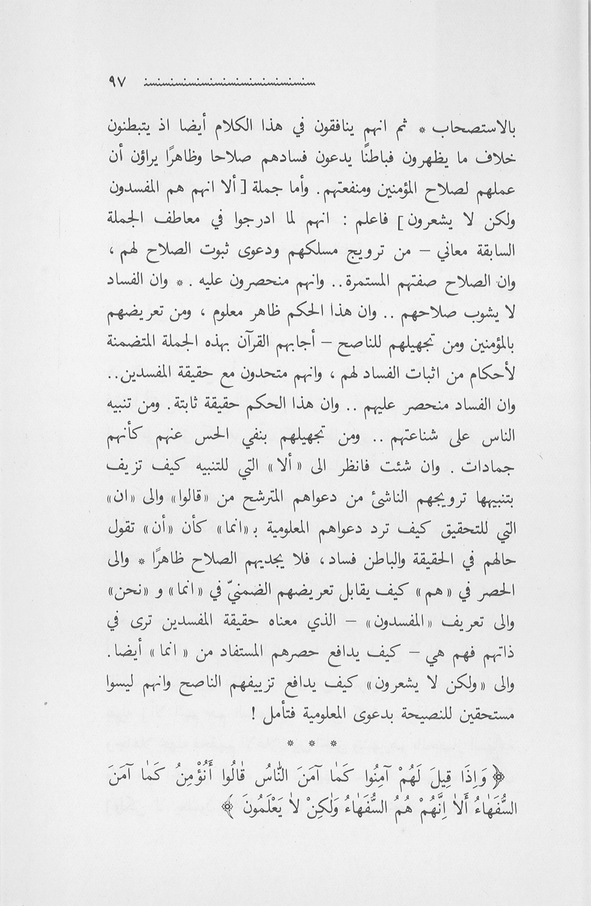 ٩٧
بالاستصحاب * ثم انهم ينافقون في هذا الكلام أيضا اذ يتبطنون
خلاف ما يظهرون فباطنًا يدعون فسادهم صلاحا وظاهرًا يراؤن أن
عملهم لصلاح المؤمنين ومنفعتهم. وأما جملة [ ألا انهم هم المفسدون
ولكن لا يشعرون] فاعلم : انهم لما ادرجوا في معاطف الجملة
السابقة معاني – من ترويج مسلكهم ودعوى ثبوت الصلاح لهم ،
وان الصلاح صفتهم المستمرة.. وانهم منحصرون عليه . * وان الفساد
لا يشوب صلاحهم .. وان هذا الحكم ظاهر معلوم ، ومن تعريضهم
بالمؤمنين ومن تجهيلهم للناصح – أجابهم القرآن بهذه الجملة المتضمنة
لأحكام من اثبات الفساد لهم ، وانهم متحدون مع حقيقة المفسدين..
وان الفساد منحصر عليهم .. وان هذا الحكم حقيقة ثابتة. ومن تنبيه
الناس على شناعتهم .. ومن تجهيلهم بنفي الحس عنهم كأنهم
جمادات . وان شئت فانظر الى «ألا» التي للتنبيه كيف تزيف
بتنبيهها ترويجهم الناشئ من دعواهم المترشح من «قالوا» والى «ان»
التي للتحقيق كيف ترد دعواهم المعلومية بـ«انما» كأن «أن» تقول
حالهم في الحقيقة والباطن فساد، فلا يجديهم الصلاح ظاهرًا * والى
الحصر في «هم» كيف يقابل تعريضهم الضمنيّ في «انما» و «نحن»
والى تعريف «المفسدون» – الذي معناه حقيقة المفسدين ترى في
ذاتهم فهم هي– كيف يدافع حصرهم المستفاد من «انما» أيضا.
والى «ولكن لا يشعرون» كيف يدافع تزييفهم الناصح وانهم ليسوا
مستحقين للنصيحة بدعوى المعلومية فتأمل !
* * *
﴿ وَاِذَا قِيلَ لَهُمْ آمِنُوا كَمَا آمَنَ النَّاسُ قَالُوا أَنُؤْمِنُ كَمَا آمَنَ
السُّفَهَاءُ أَلَا اِنَّهُمْ هُمُ السُّفَهَاءُ وَلَكِنْ لَا يَعْلَمُونَ ﴾